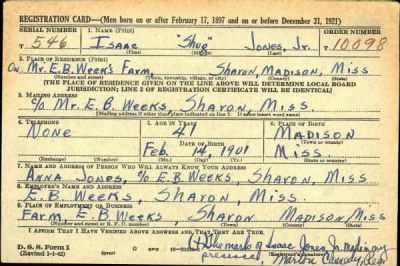 REGISTRATION CARD—(Men born on or after February 17, 1897 and on or before December 31, 1921)
SERIAL NUMBER 1. NAME (Print) ORDER NUMBER
T 546 ISAAC "Shug" JONES, Jr. 10098
(First) (Middle) (Last)
2. PLACE OF RESIDENCE (Print)
On Mr. E. B. Weeks Farm, Sharon, Madison, Miss
(Number and street) (Town, township, village, or city) (County) (State)
[THE PLACE OF RESIDENCE GIVEN ON THE LINE ABOVE WILL DETERMINE LOCAL BOARD
JURISDICTION; LINE 2 OF REGISTRATION CERTIFICATE WILL BE IDENTICAL]
3. MAILING ADDRESS
c/o Mr. E. B. Weeks, Sharon, Miss.
[Mailing address if other than place indicated on line 2. If same insert word same]
4. TELEPHONE 5. AGE IN YEARS 6. PLACE OF BIRTH
None 41 Madison
DATE OF BIRTH (Town or county)
Feb. 14, 1901 Miss.
(Exchange) (Number) (Mo.) (Day) (Yr.) (State or country)
7. NAME AND ADDRESS OF PERSON WHO WILL ALWAYS KNOW YOUR ADDRESS
Anna Jones, c/o E. B. Weeks, Sharon, Miss
8. EMPLOYER'S NAME AND ADDRESS
E. B. Weeks, Sharon, Miss.
9. PLACE OF EMPLOYMENT OR BUSINESS
Farm, E. B. Weeks, Sharon Madison, Miss
(Number and street or R. F. D. number) (Town) (County) (State)
I AFFIRM THAT I HAVE VERIFIED ABOVE ANSWERS AND THAT THEY ARE TRUE.
D. S. S. Form 1
(Revised 1-1-42) (over)
The mark of Isaac Jones Jr. made in my
presence,